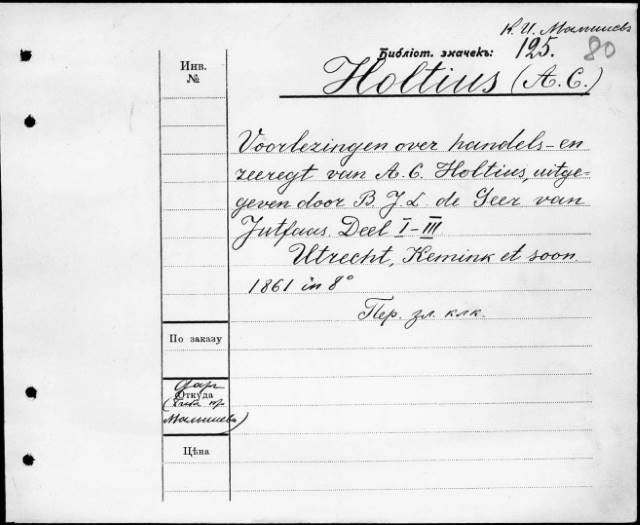 К. И. Малышев
Библіот. значекъ: 125. 80
Инв.
№
Holtius (A. C.)
Voorlezingen over handels- en
zeeregt van A. C. Holtius, uitge-
geven door B. J. L. de Geer van
Jutfaas. Deel I-III
Utrecht, Kemink et soon.
1861 in 8°
Пер. зл. клк.
По заказу
Дар
Откуда
Малышева)
Цѣна